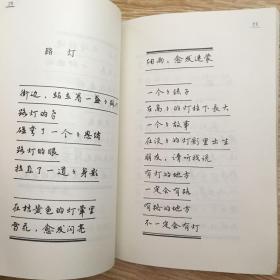 路灯
街边，站立着一盏
路灯的手
碰弯了一个个思绪
路灯的眼
拉直了一道道身影
在桔黄色的灯晕里
雪花，愈发闪亮
细雨，愈发迷蒙
一个个孩子
在高高的灯柱下长大
一个个故事
在淡淡的灯影里出生
朋友，请听我说
有灯的地方
一定会有路
有路的地方
不一定会有灯